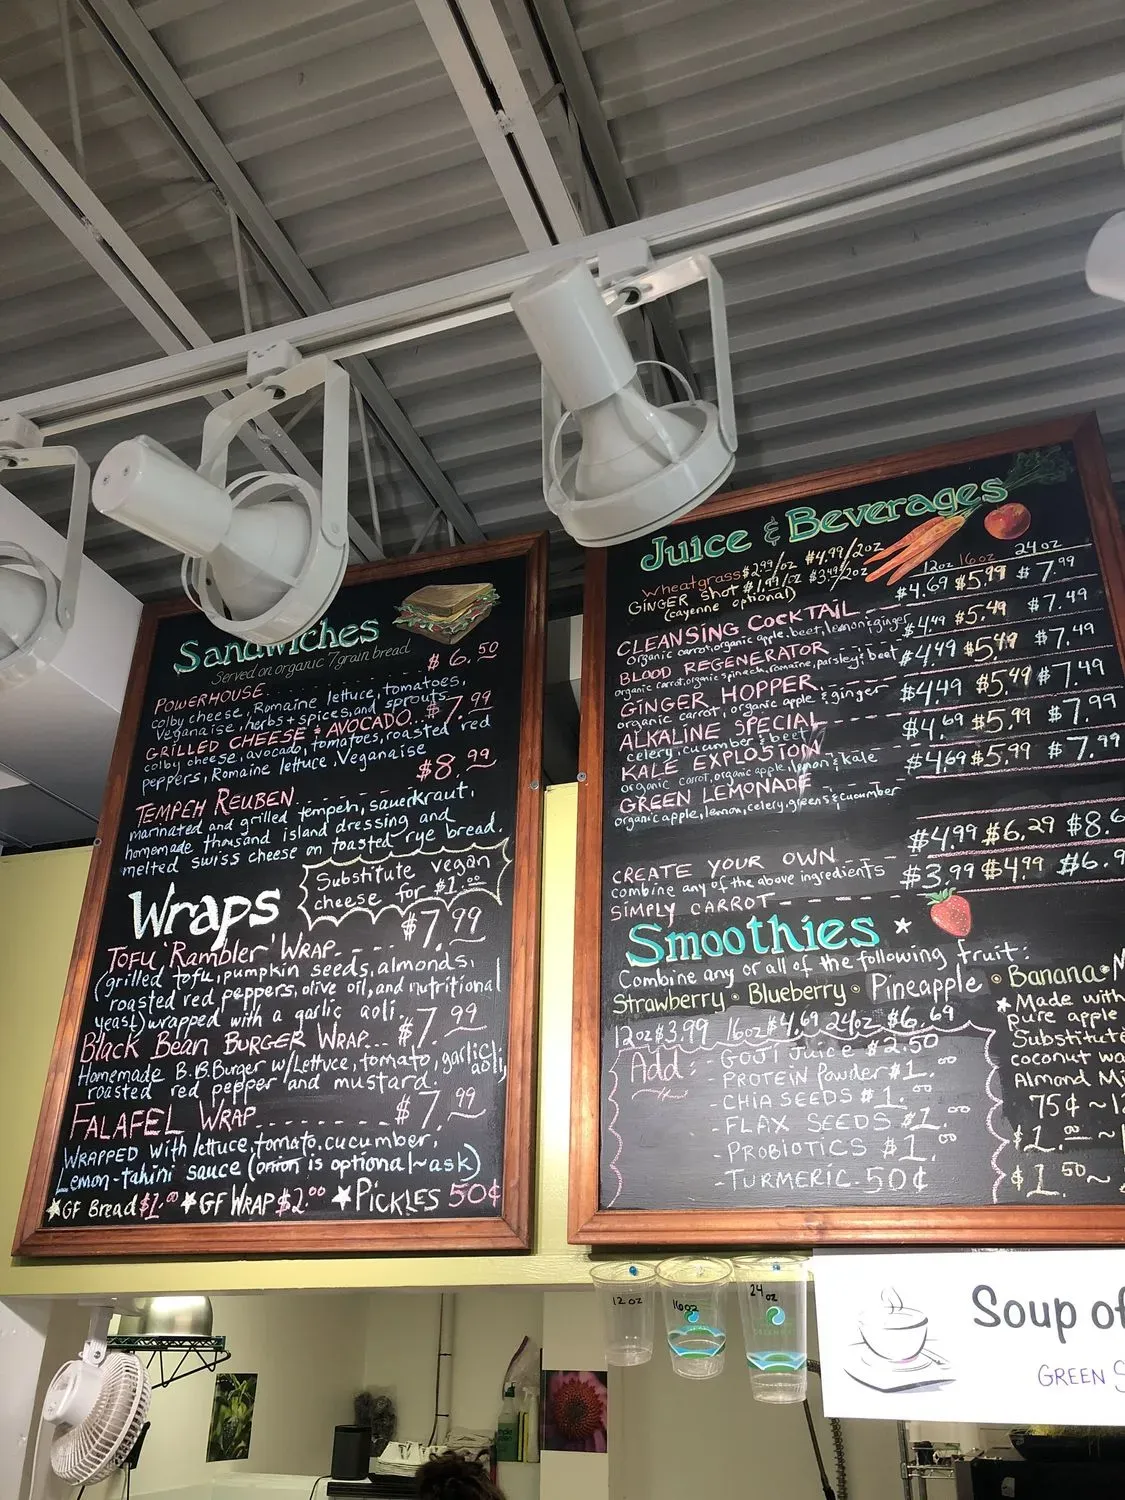 Sandwiches
Served on organic 7 grain bread
POWERHOUSE $6.50
colby cheese, Romaine lettuce, tomatoes,
Veganaise, herbs + spices, and sprouts
GRILLED CHEESE & AVOCADO... $7.99
colby cheese, avocado, tomatoes, roasted red
peppers, Romaine lettuce, Veganaise
$8.99
TEMPEH REUBEN
marinated and grilled tempeh, sauerkraut,
homemade thousand island dressing and
melted swiss cheese on toasted rye bread.
Substitute vegan
cheese for $1.00
Wraps
$7.99
TOFU 'Rambler' WRAP
(grilled tofu, pumpkin seeds, almonds,
roasted red peppers, olive oil, and nutritional
yeast) wrapped with a garlic aoli.
Black Bean BURGER WRAP... $7.99
Homemade B.B.Burger w/Lettuce, tomato, garlic aoli,
roasted red pepper and mustard.
FALAFEL WRAP $7.99
WRAPPED with lettuce, tomato, cucumber,
Lemon-tahini sauce (onion is optional~ask)
GF Bread $1.00 GF WRAP $2.00 PICKLES 50¢
Juice & Beverages
Wheatgrass $2.99/oz $4.99/2oz
GINGER Shot $1.99/oz $3.49/2oz
(cayenne optional)
12oz 16oz 24oz
$4.69 $5.99 $7.99
CLEANSING COCKTAIL
organic carrot, organic apple, beet, lemon & ginger
$4.49 $5.49 $7.49
BLOOD REGENERATOR
organic carrot, organic spinach, romaine, parsley & beet
$4.49 $5.49 $7.49
GINGER HOPPER
organic carrot, organic apple & ginger
$4.49 $5.49 $7.49
ALKALINE SPECIAL
celery, cucumber & beet
$4.69 $5.99 $7.99
KALE EXPLOSION
organic carrot, organic apple, lemon & kale
$4.69 $5.99 $7.99
GREEN LEMONADE
organic apple, lemon, celery, greens & cucumber
$4.99 $6.29 $8.6
CREATE YOUR OWN
combine any of the above ingredients
$3.99 $4.99 $6.9
SIMPLY CARROT
Smoothies
Combine any or all of the following fruit:
Strawberry • Blueberry • Pineapple • Banana • M
12oz $3.99 16oz $4.69 24oz $6.69
Add:
- GOJI Juice $2.50
- PROTEIN Powder $1.00
- CHIA SEEDS $1.00
- FLAX SEEDS $1.00
- PROBIOTICS $1.00
- TURMERIC. 50¢
Made with
pure apple
Substitute
coconut wa
Almond Mi
75¢ ~ 12
$1.00 ~
$1.50 ~
12 oz
16oz
24 oz
Soup of
GREEN S